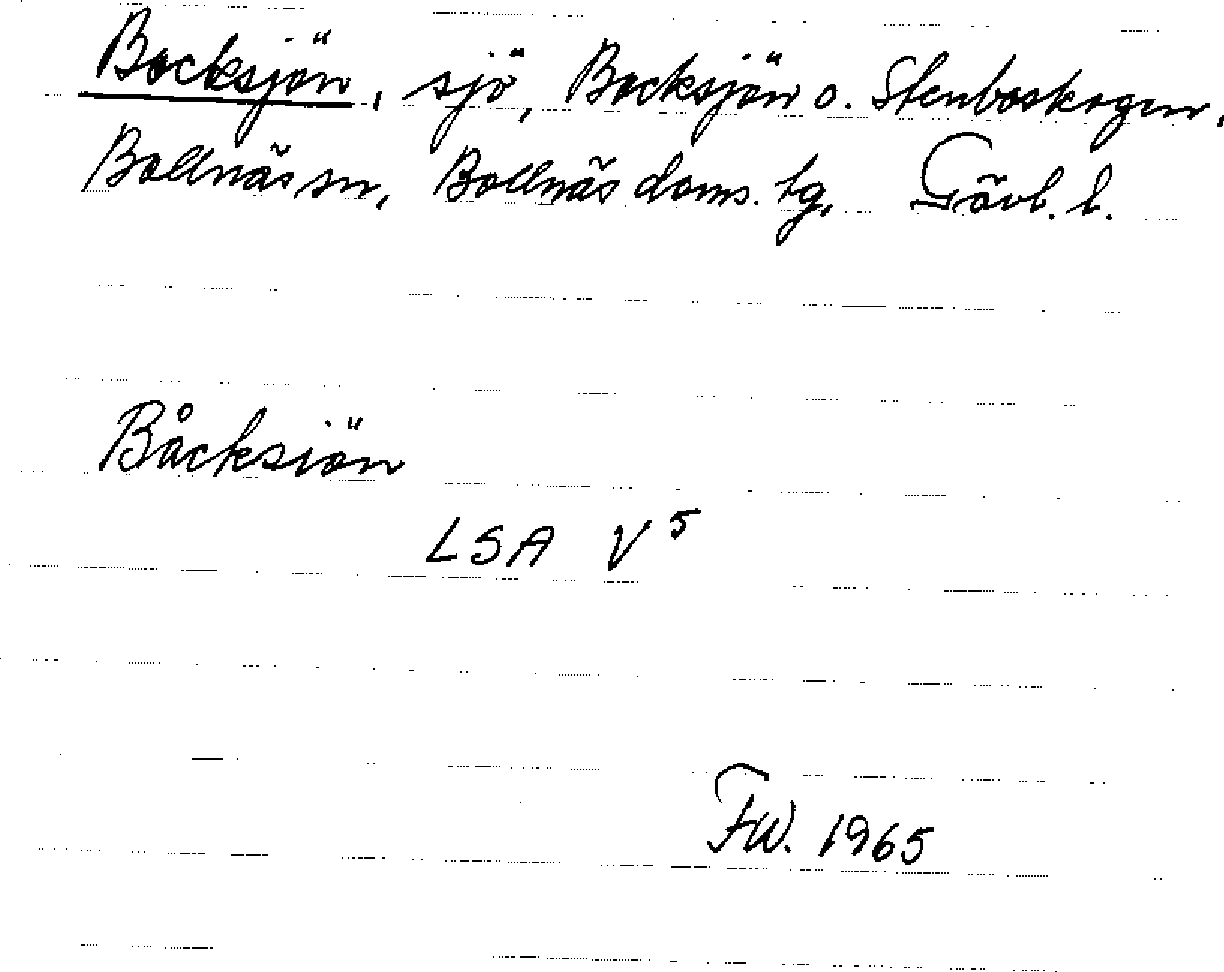 Bocksjön, sjö, Bocksjön o. Stenboskogen,
Bollnäs sn, Bollnäs doms. tg, Gävl. l.
Båcksiön
LSA V 5
FW. 1965